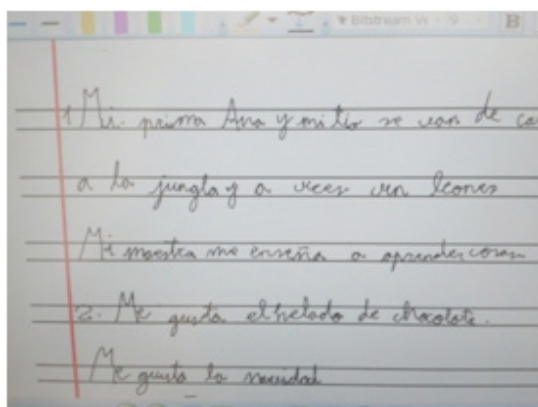 Bitstream Ve 9 B
1 Mi prima Ana y mi tio se van de ca
a la jungla y a veces ven leones
Mi maestra me enseña a aprender cosas
2. Me gusta el helado de chocolate.
Me gusta la navidad